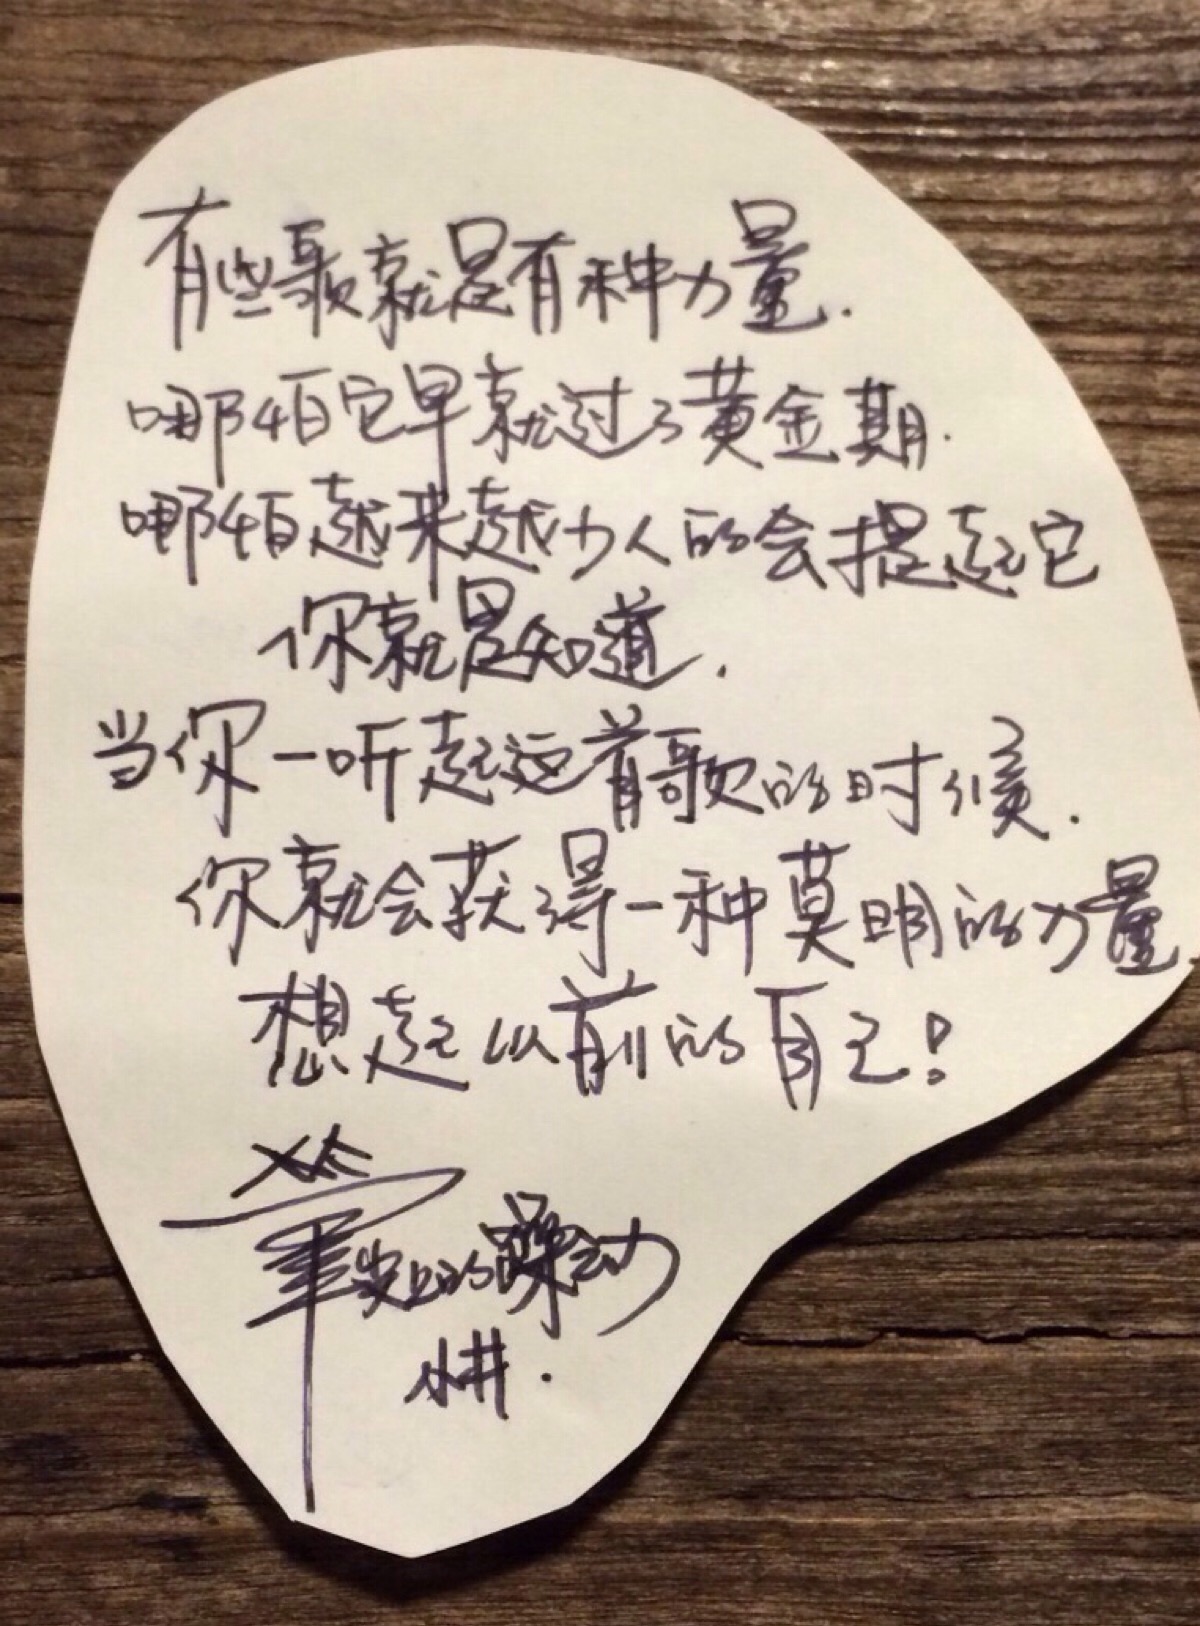 有些歌就是有种力量.
哪怕它早就过了黄金期.
哪怕越来越少人的会提起它
你就是知道.
当你一听起这首歌的时候.
你就会获得一种莫明的力量.
想起以前的自己!
的躁动
小井.